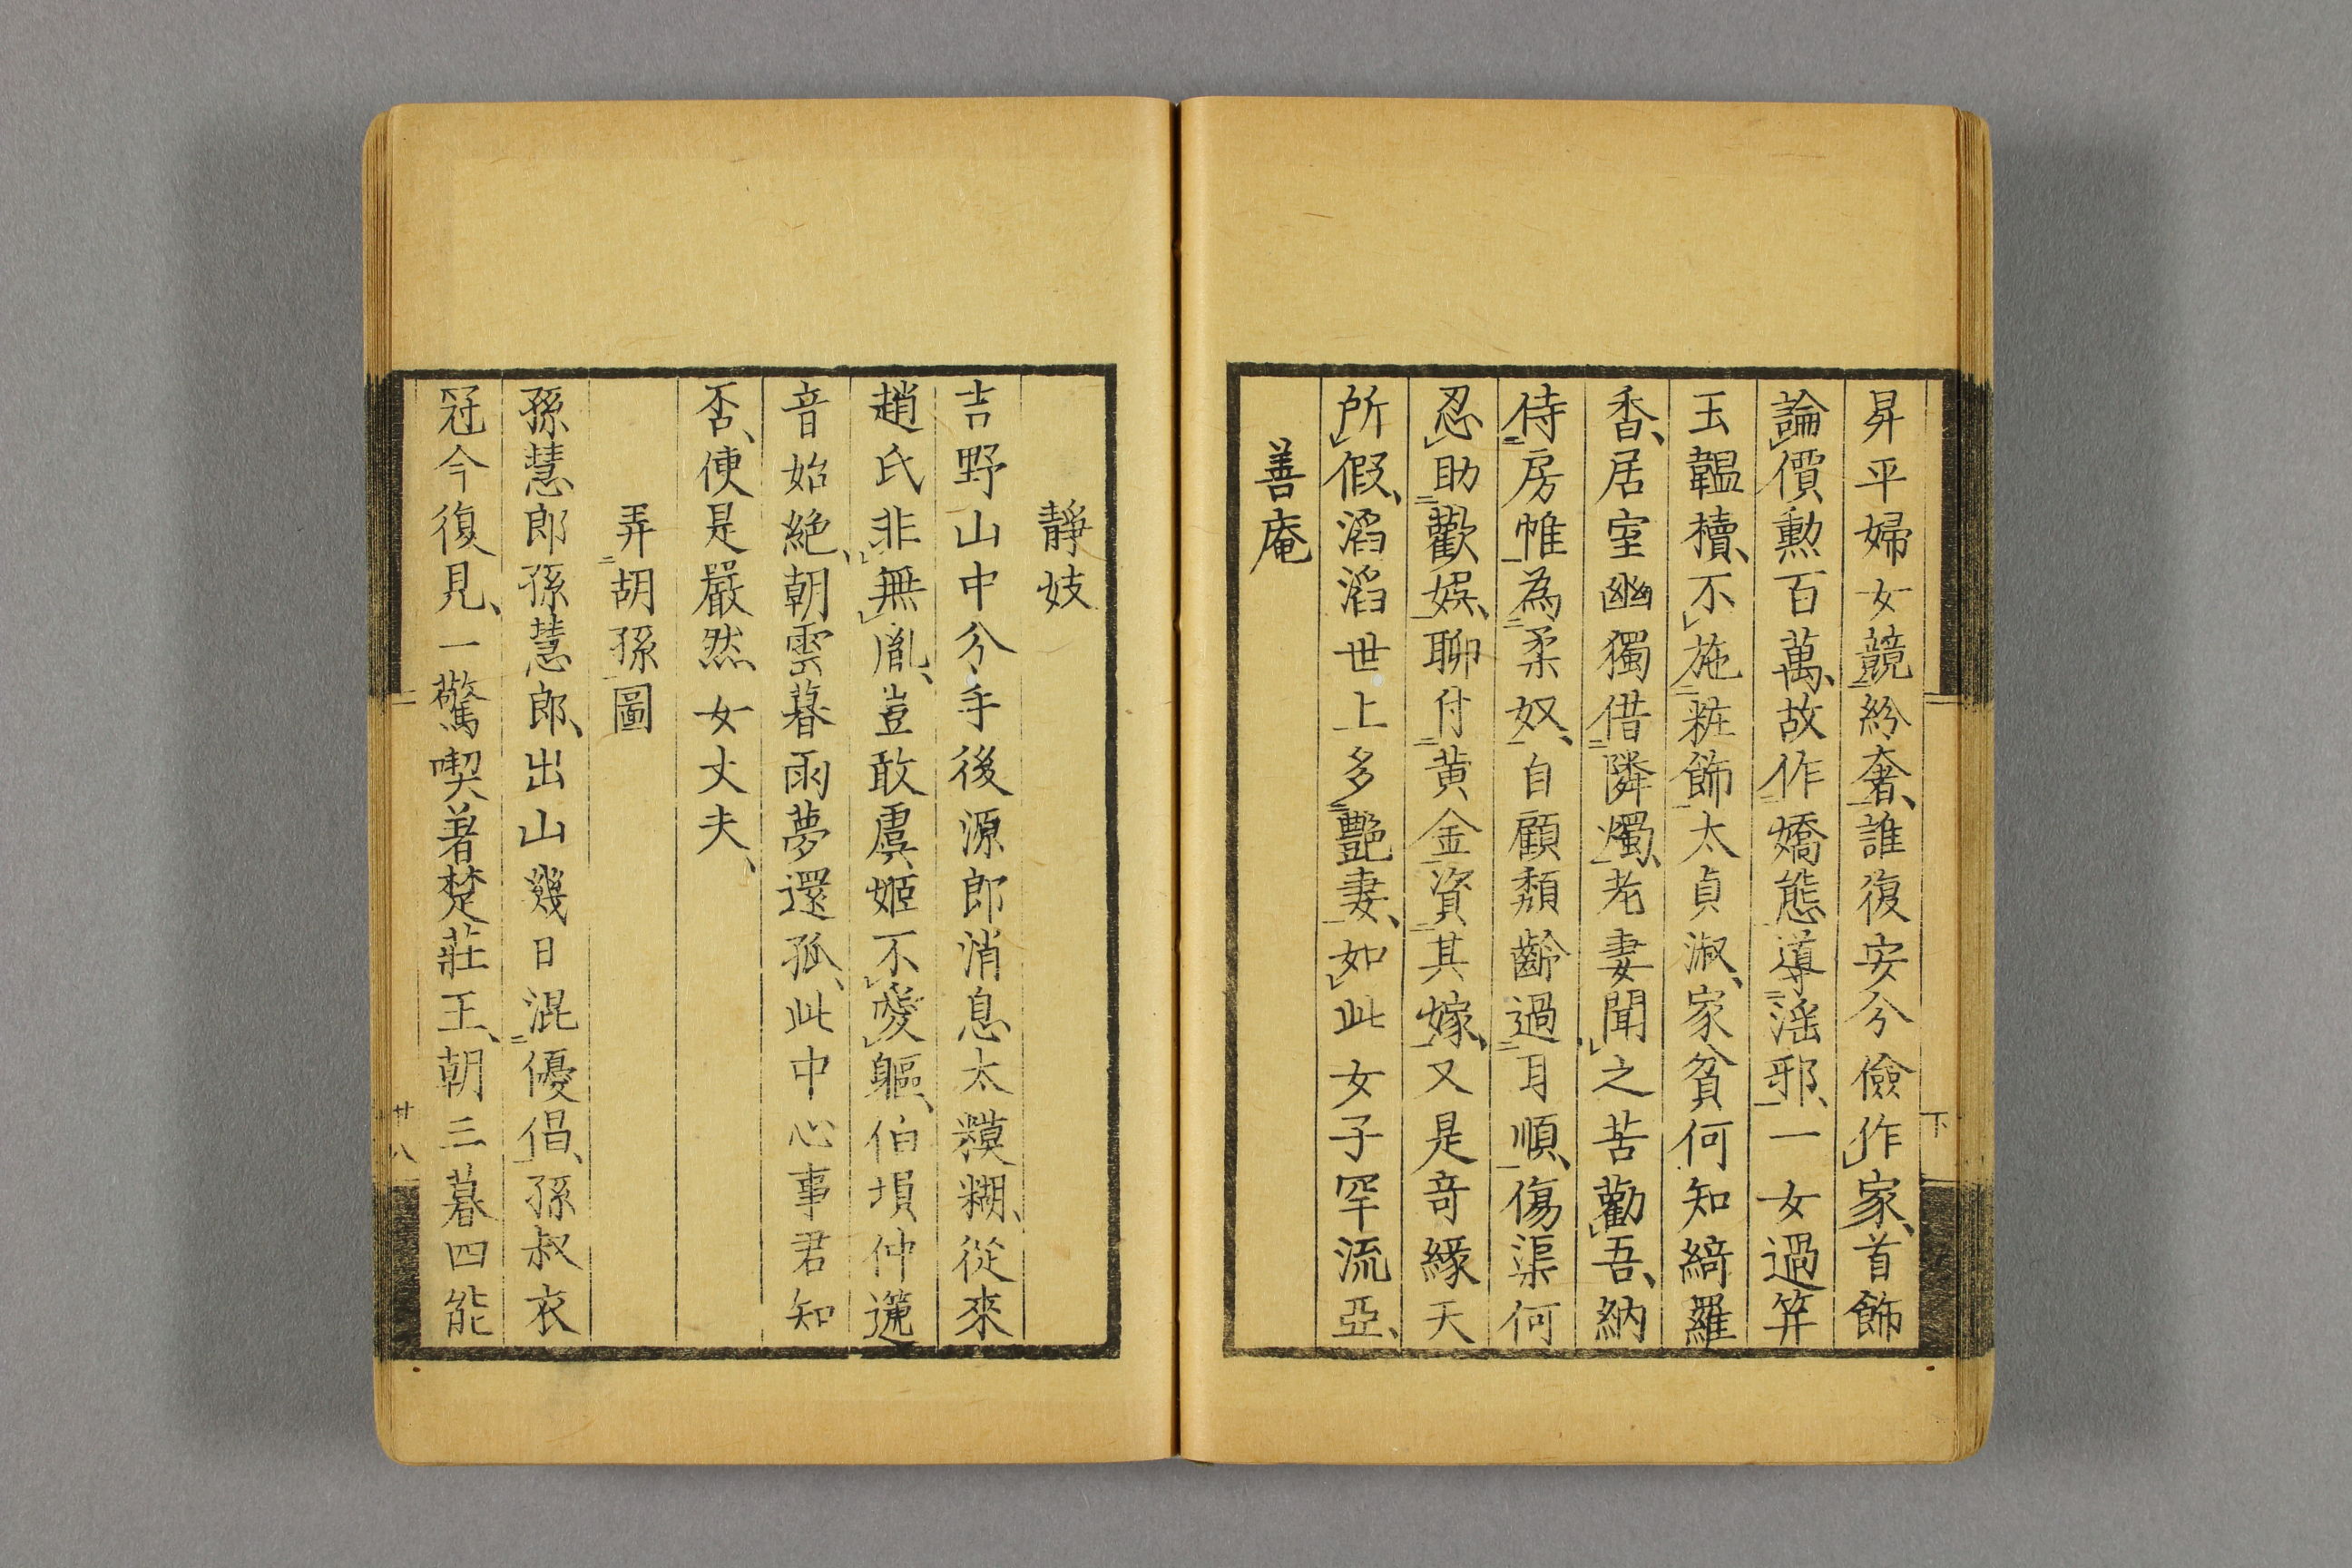 昇平婦女競紛奢、誰復安兮儉作家、首飾
論價勲百萬、故作嬌態導滛邪、一女過笄
玉韞櫝、不施粧飾太貞淑、家貧何知綺羅
香、居室幽獨借隣燭、老妻聞之苦勸吾、納
侍房帷為柔奴、自顧頽齡過耳順、傷渠何
忍助歡娯、聊付黄金資其嫁、又是奇緣天
所假、滔滔世上多艶妻、如此女子罕流亞、
善庵
下
靜妓
吉野山中分手後源郎消息太糢糊、從來
趙氏非無胤、豈敢虞姬不愛軀、伯塤仲篪
音始絶、朝雲暮雨夢還孤、此中心事君知
否、便是嚴然女丈夫、
弄胡孫圖
孫慧郎孫慧郎、出山幾日混優倡、孫叔衣
冠今復見、一驚喫著楚莊王、朝三暮四能
廿八